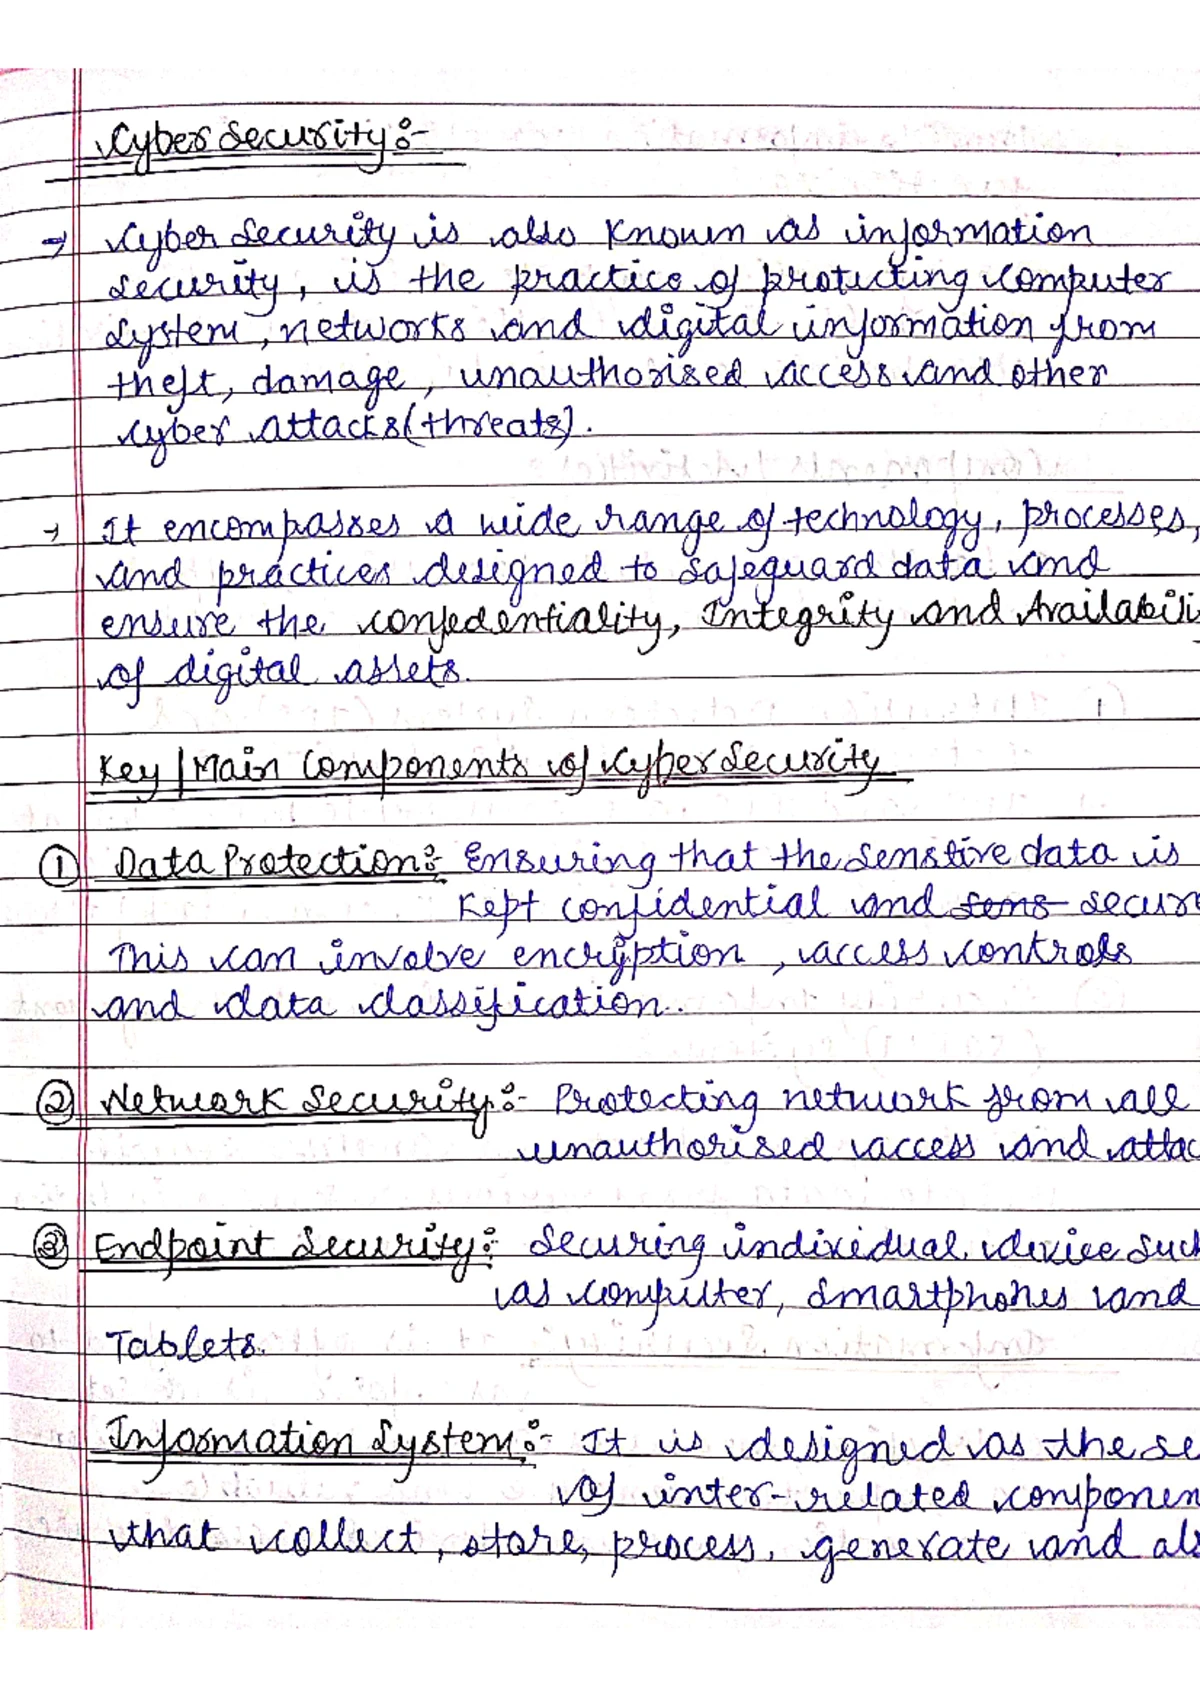 Cyber Security :-
→ Cyber Security is also known as information
security, is the practice of protecting computer
system, networks and digital information from
theft, damage, unauthorised access and other
cyber attacks (threats).
→ It encompasses a wide range of technology, processes,
and practices designed to safeguard data and
ensure the confedentiality, Integrity and Availabili
of digital assets.
Key | Main Components of Cyber Security
① Data Protection :- Ensuring that the senstive data is
kept confidential and sens secure
This can involve encryption, access controls
and data classification.
② Network Security :- Protecting network from all
unauthorised access and attac
③ Endpoint Security :- Securing individual device such
as computer, smartphones and
Tablets.
Information System :- It is designed as the se
of inter-related componen
that collect, store, process, generate and als